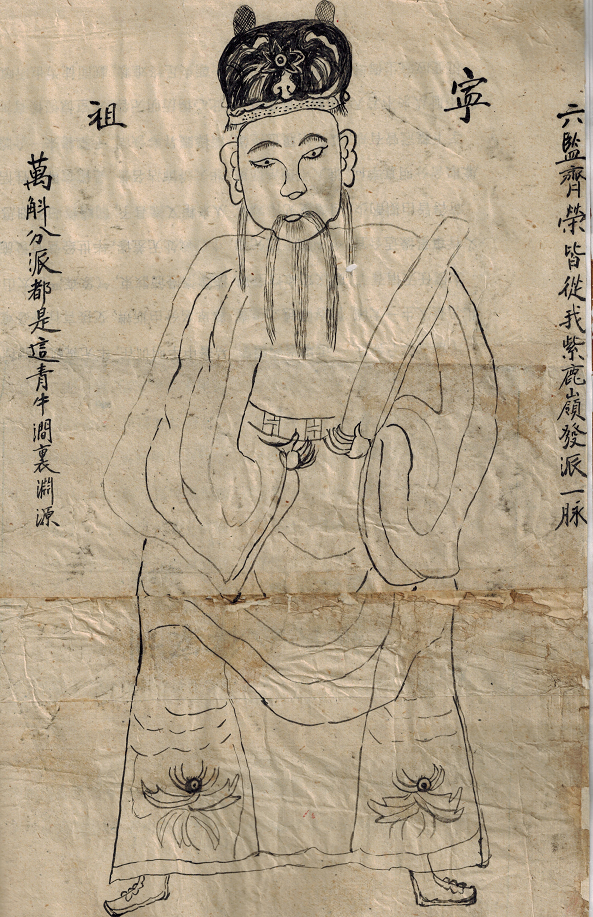 六監齊榮皆從我紫鹿嶺發派一脉
寜祖
萬斛分派都是這青牛澗裏淵源